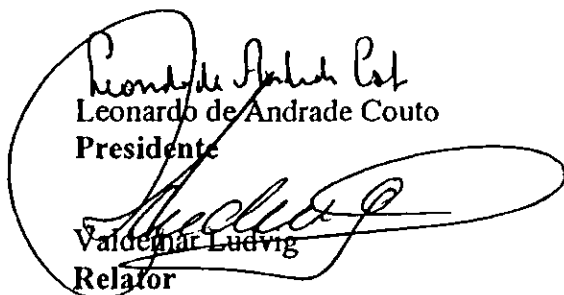 Leonardo de Andrade Couto
Presidente
Valdemar Ludvig
Relator